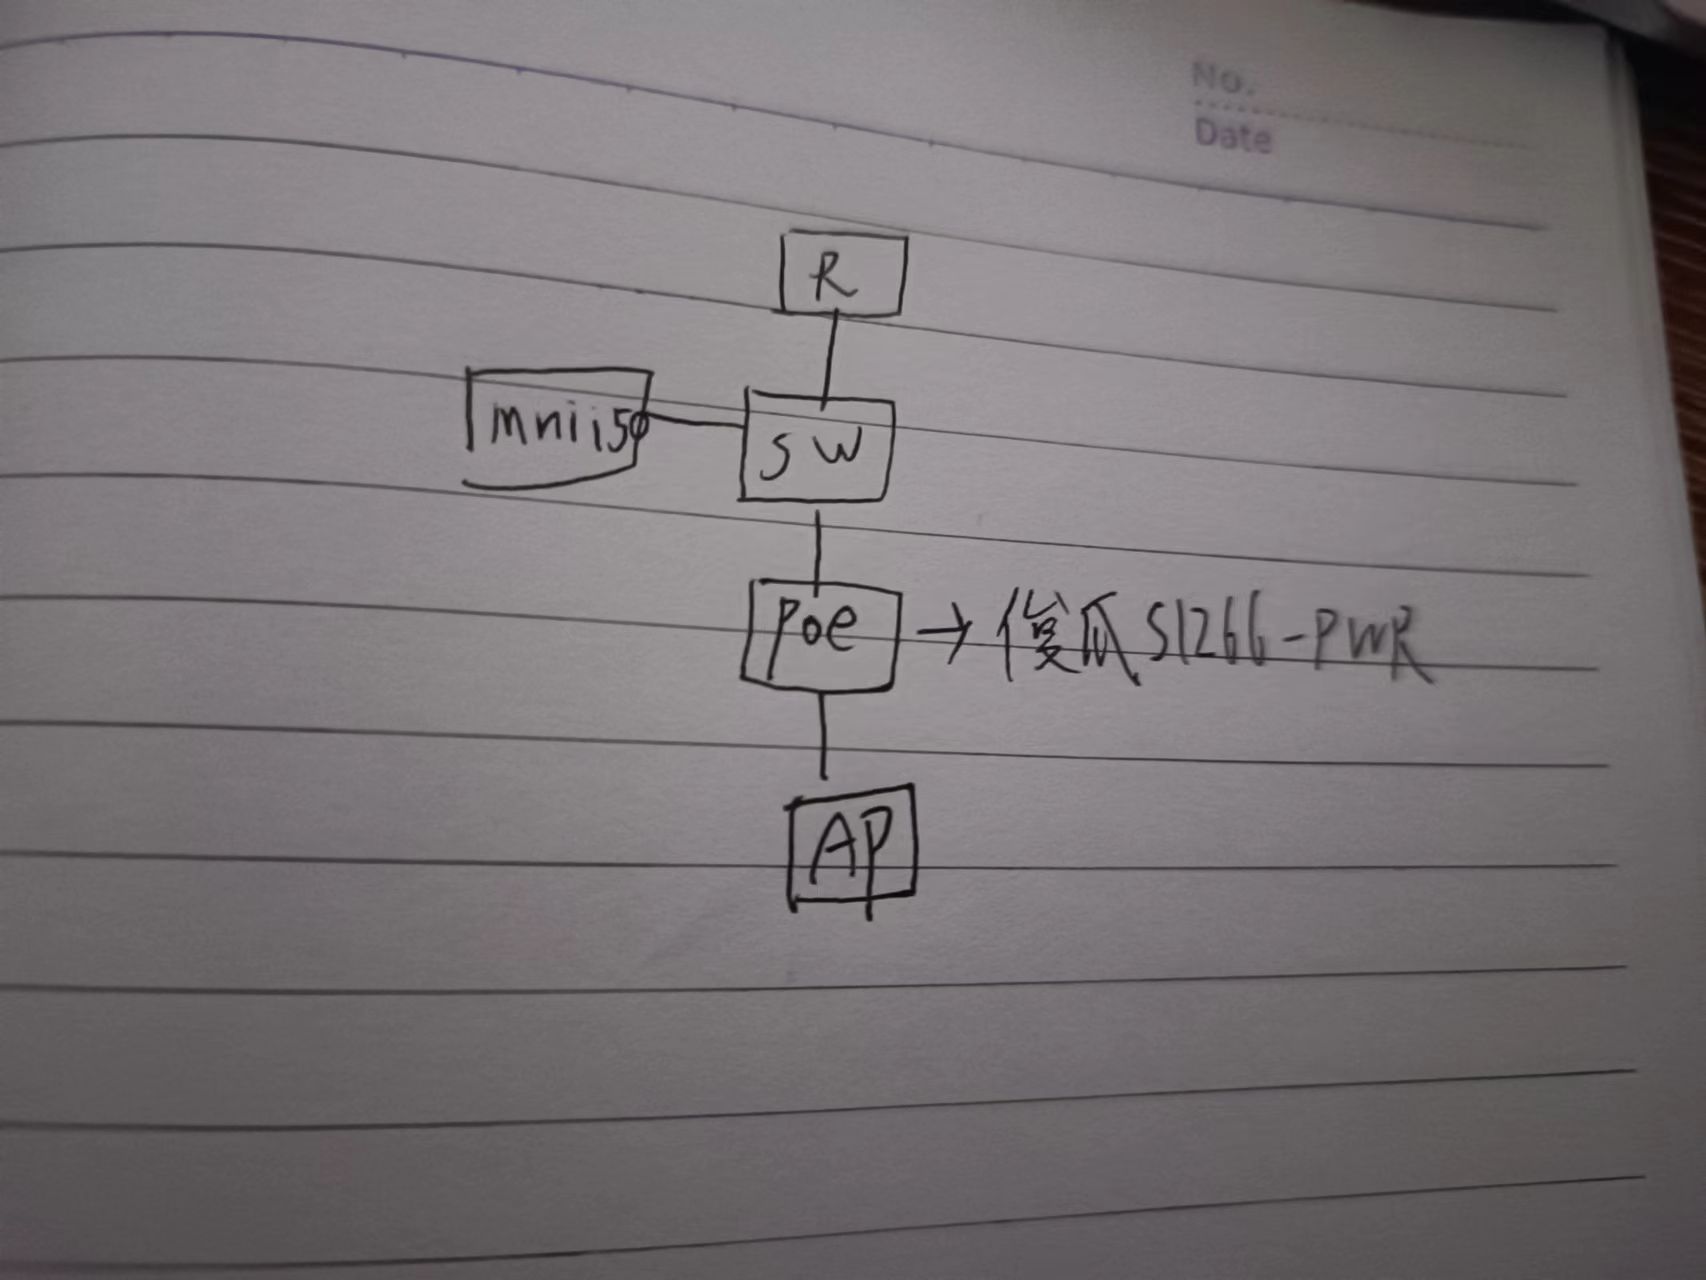 No.
Date
R
mnii50
SW
poe → 傻瓜 S1266-PWR
AP